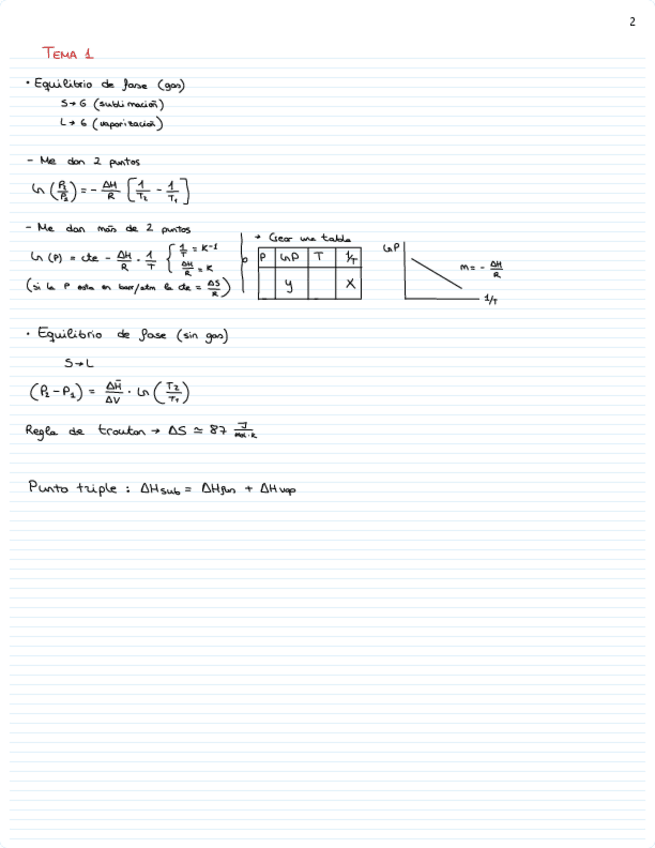 2
TEMA 1
• Equilibrio de fase (gas)
S→G (sublimación)
L→G (vaporización)
- Me dan 2 puntos
ln (P₂/P₁) = - ΔH/R [1/T₂ - 1/T₁]
- Me dan más de 2 puntos
ln (P) = cte - ΔH/R · 1/T { 1/T = K-1
ΔH/R = K
(si la P esta en bar/atm la cte = ΔS/R)
→ Crear una tabla
P | lnP | T | 1/T
y | x
lnP
m = - ΔH/R
1/T
• Equilibrio de fase (sin gas)
S→L
(P₂-P₁) = ΔH̄/ΔV · ln (T₂/T₁)
Regla de trouton → ΔS ≃ 87 J/mol·K
Punto triple : ΔHsub = ΔHfus + ΔHvap